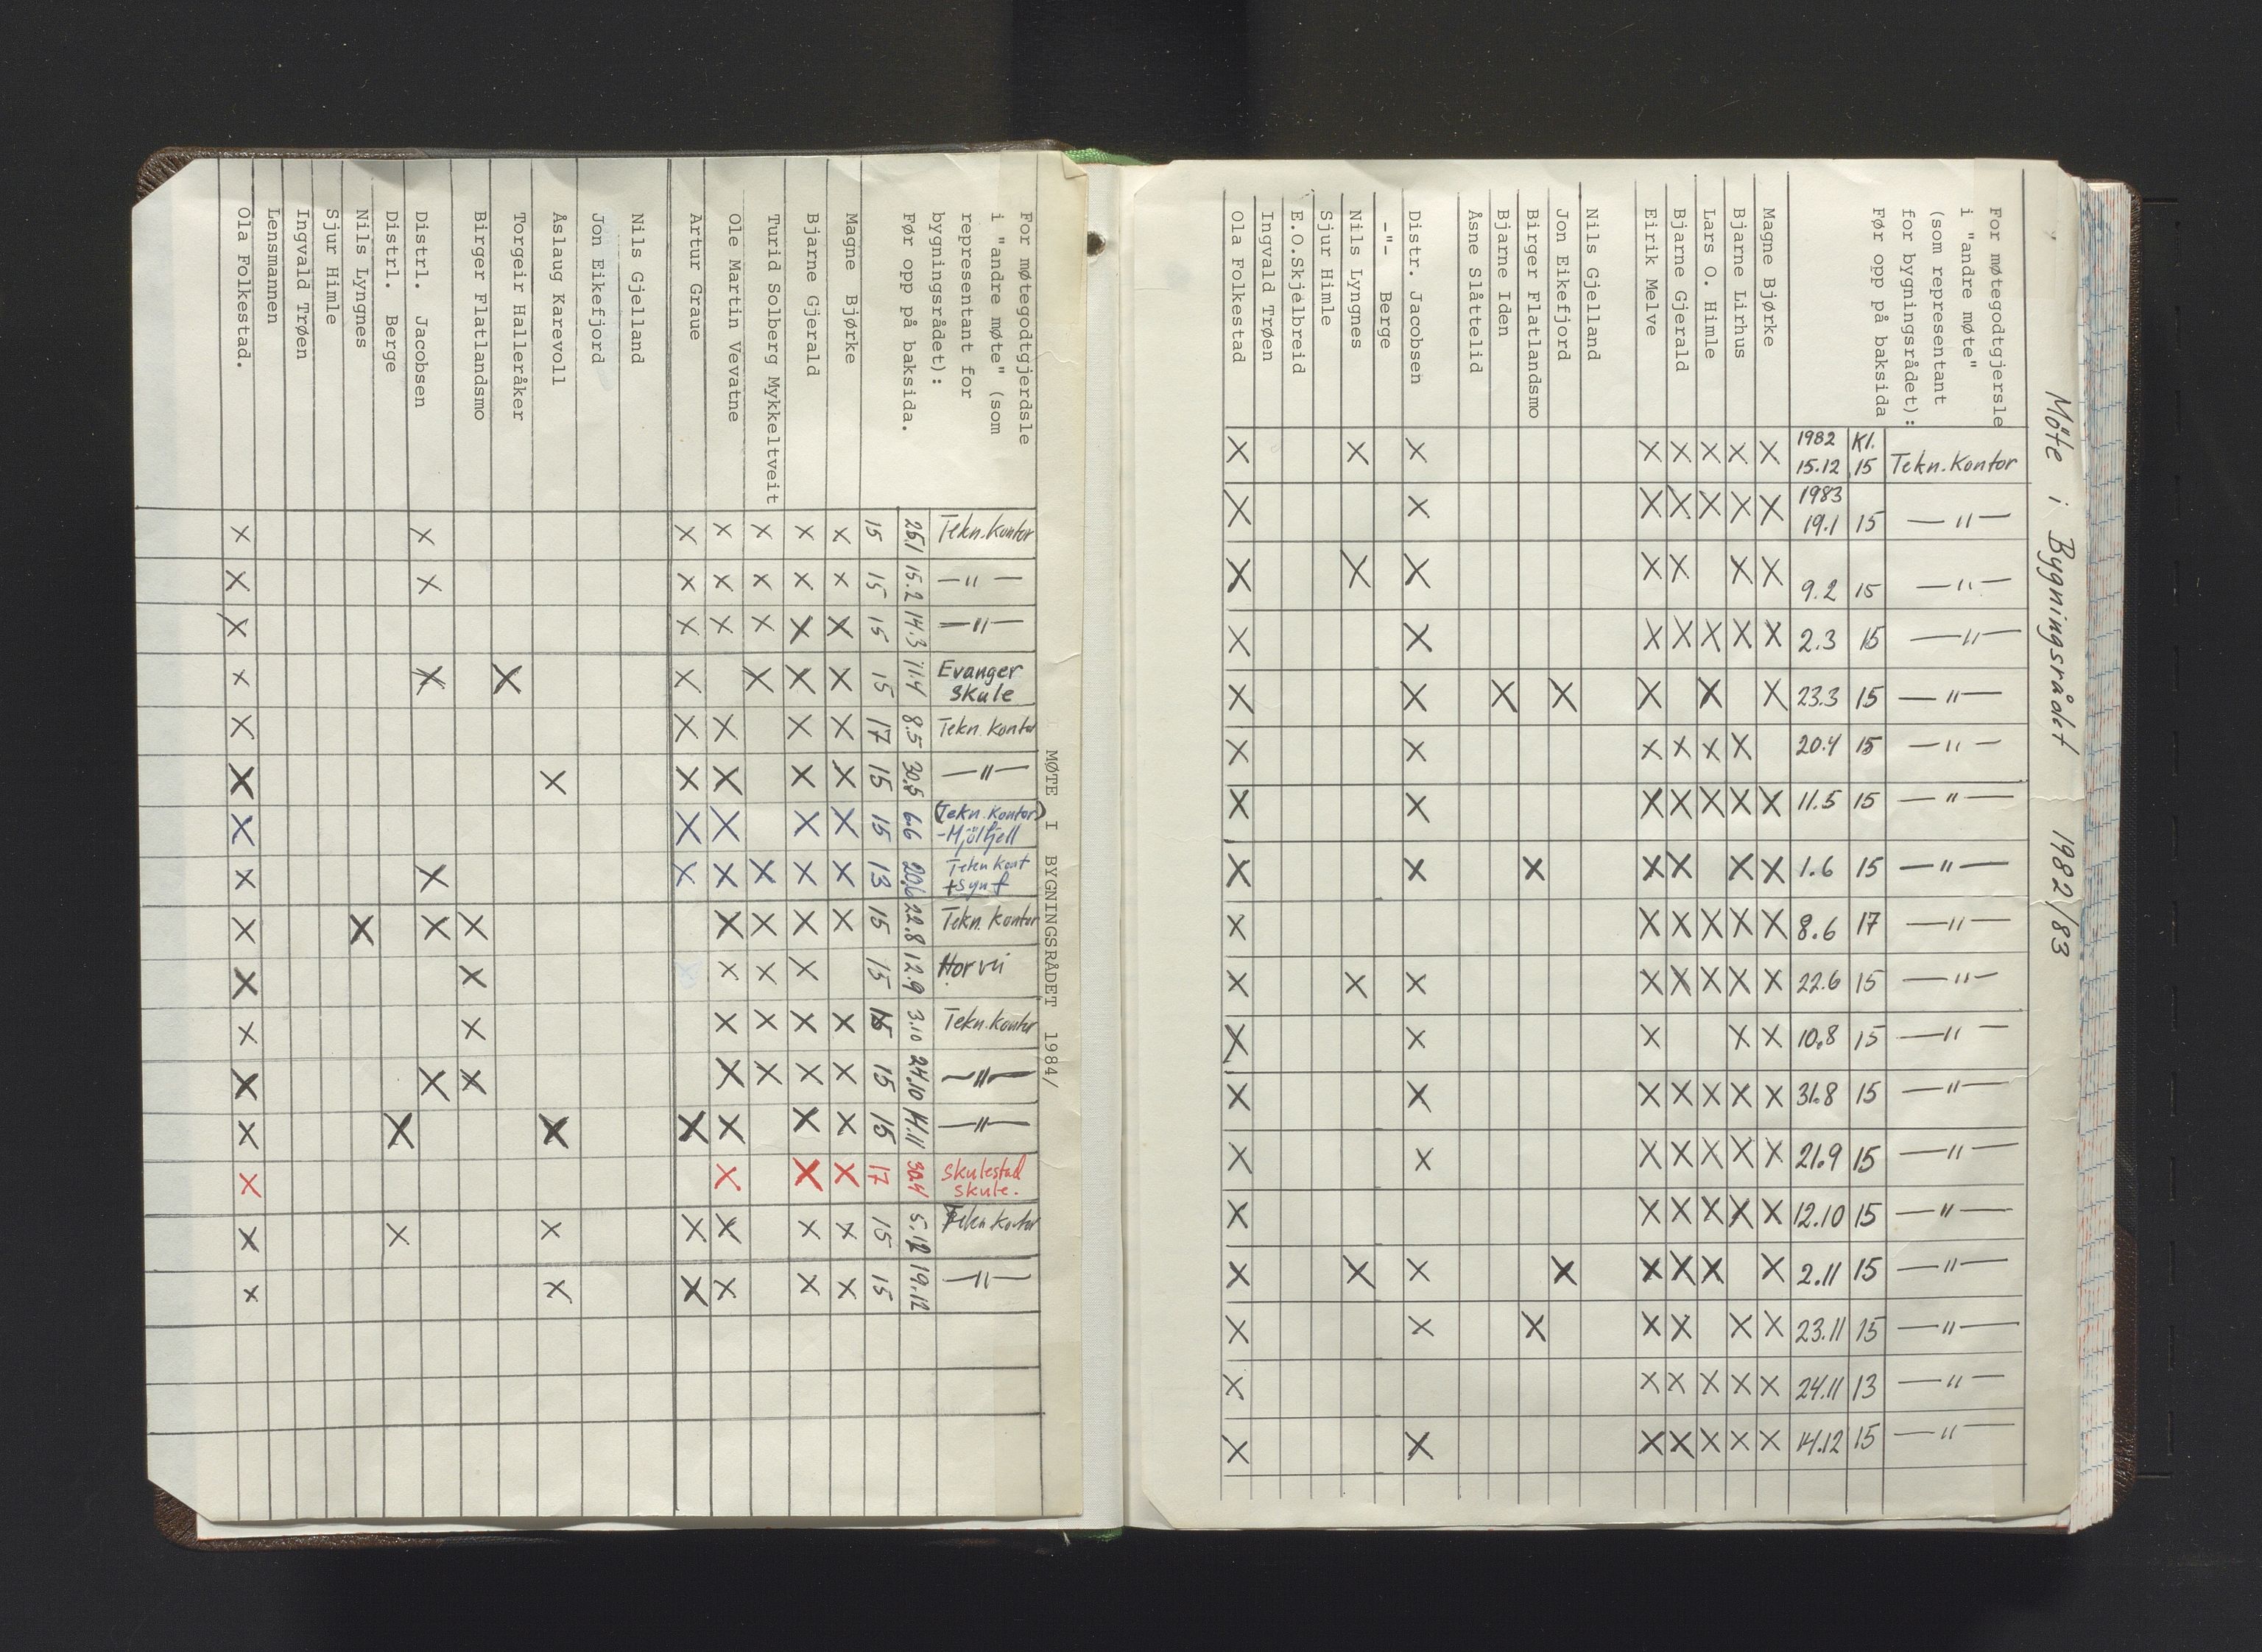 MØTE I BYGNINGSRÅDET 1984/
For møtegodtgjerdsle
i "andre møte" (som
representant for
bygningsrådet):
Før opp på baksida.
Magne Bjørke
Bjarne Gjerald
Turid Solberg Mykkeltveit
Ole Martin Vevatne
Artur Graue
Nils Gjelland
Jon Eikefjord
Åslaug Karevoll
Torgeir Halleråker
Birger Flatlandsmo
Distrl. Jacobsen
Distrl. Berge
Nils Lyngnes
Sjur Himle
Ingvald Trøen
Lensmannen
Ola Folkestad.
X X X X X X X 15 25.1 Tekn. Kontor
X X X X X X X 15 15.2 — " —
X X X X X X 15 14.3 — " —
X X X X X X X 15 11.4 Evanger
skule
X X X X X 17 8.5 Tekn. kontor
X X X X X X 15 30.5 — " —
X X X X X 15 6.6 (Tekn. Kontor)
- Mjölfjell
X X X X X X X 13 20.6 Tekn kont
+ synf
X X X X X X X X 15 22.8 Tekn. kontor
X X X X X X 15 12.9
X X X X X X 15 3.10 Tekn. kontor
X X X X X X X 15 24.10 — " —
X X X X X X X 15 14.11 — " —
X X X X 17 30.4 Skulestad
skule.
X X X X X X X 15 5.12 Tekn. kontor
X X X X X X 15 19.12 — " —
Möte i Bygningsrådet 1982/83
For møtegodtgjersle
i "andre møte"
(som representant
for bygningsrådet):
Før opp på baksida
Magne Bjørke
Bjarne Lirhus
Lars O. Himle
Bjarne Gjerald
Eirik Melve
Nils Gjelland
Jon Eikefjord
Birger Flatlandsmo
Bjarne Iden
Åsne Slåttelid
Distr. Jacobsen
-"- Berge
Nils Lyngnes
Sjur Himle
E.O.Skjelbreid
Ingvald Trøen
Ola Folkestad
1982 Kl.
X X X X X X X X 15.12 15 Tekn. Kontor
1983
X X X X X X X 19.1 15 — " —
X X X X X X X 9.2 15 — " —
X X X X X X X 2.3 15 — " —
X X X X X X X 23.3 15 — " —
X X X X X X 20.4 15 — " —
X X X X X X X 11.5 15 — " —
X X X X X X X 1.6 15 — " —
X X X X X X 8.6 17 — " —
X X X X X X X X 22.6 15 — " —
X X X X X 10.8 15 — " —
X X X X X X X 31.8 15 — " —
X X X X X X X 21.9 15 — " —
X X X X X X 12.10 15 — " —
X X X X X X X X 2.11 15 — " —
X X X X X X X 23.11 15 — " —
X X X X X X 24.11 13 — " —
X X X X X X X 14.12 15 — " —